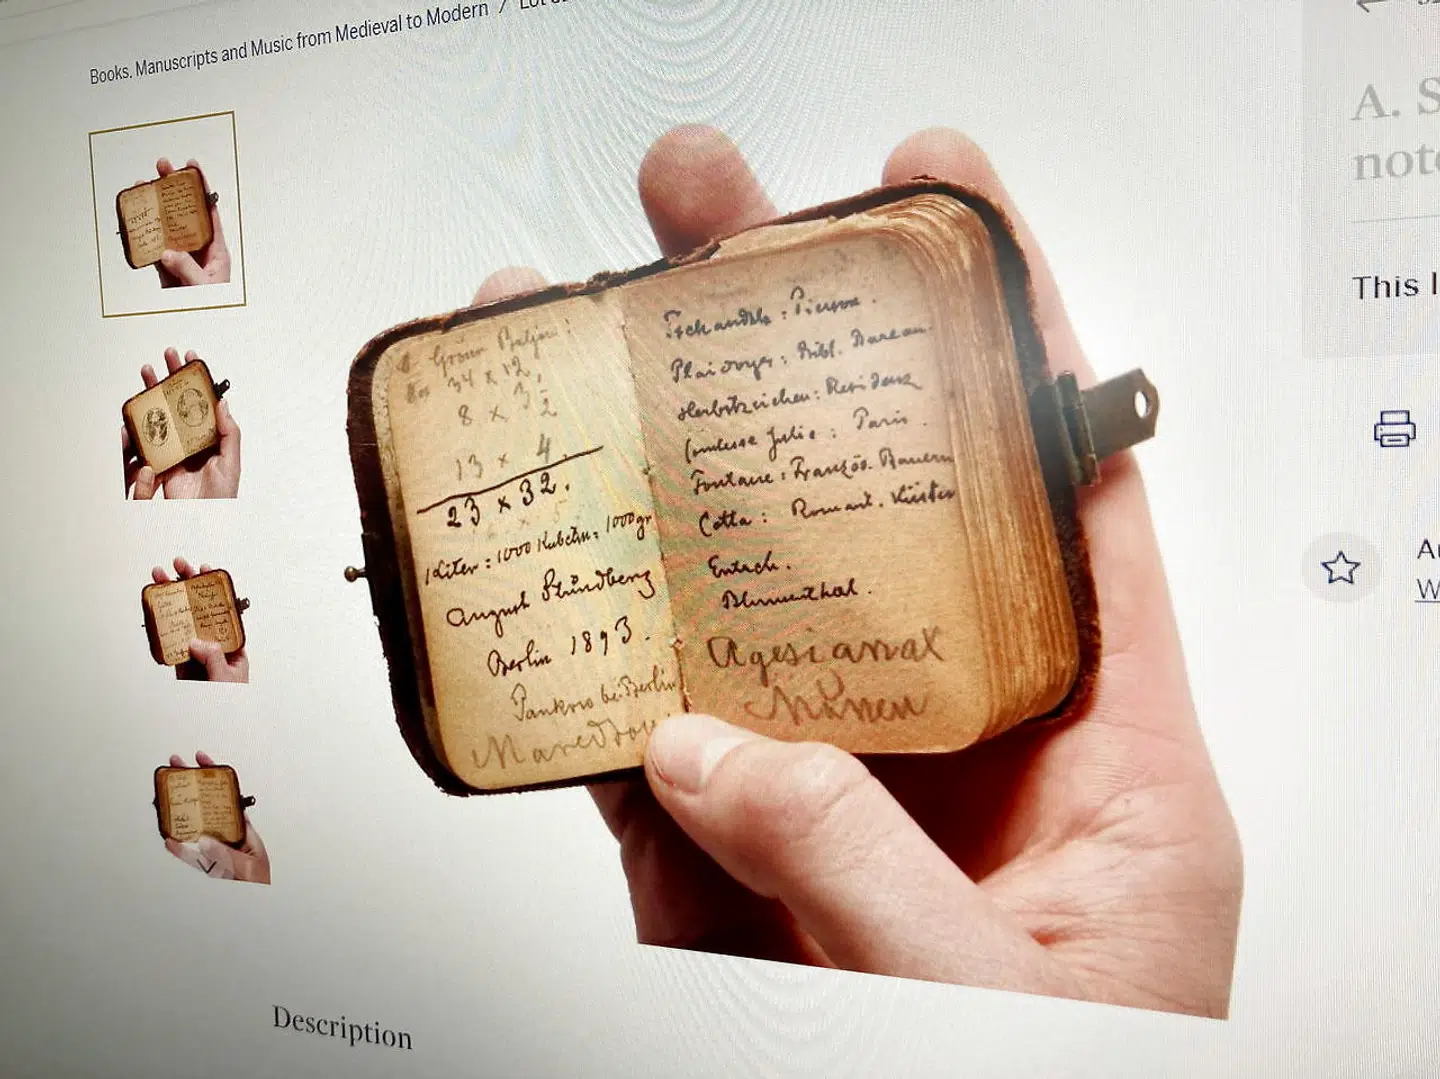 Books, Manuscripts and Music from Medieval to Modern / Lot
34 x 12,
8 x 3 1/2
13 x 4.
23 x 32.
1 Liter = 1000 Kubctm = 1000 gr
August Strindberg
Berlin 1893.
Pankow bei Berlin
Tschandala: Pierson.
Plaidoyer: Bibl. Bureau.
Herbstzeichen: Residenz
Comtesse Julie: Paris.
Fontane: Französ. Bauern
Cotta: Romant. Küster
Entsch.
Blumenthal.
Agesianax
A. S
note
This l
Description